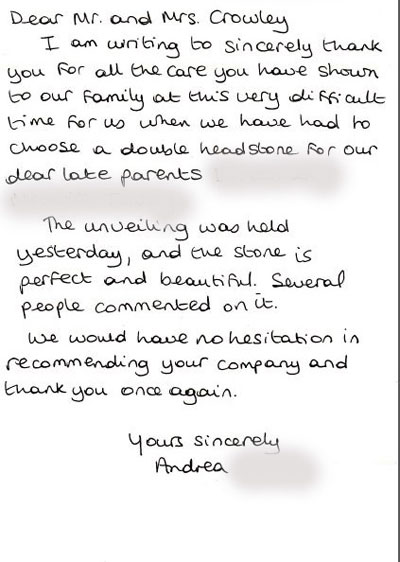 Dear Mr. and Mrs. Crowley
I am writing to sincerely thank
you for all the care you have shown
to our family at this very difficult
time for us when we have had to
choose a double headstone for our
dear late parents
The unveiling was held
yesterday, and the stone is
perfect and beautiful. Several
people commented on it.
We would have no hesitation in
recommending your company and
thank you once again.
Yours sincerely
Andrea